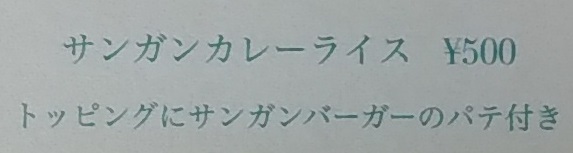 サンガンカレーライス ¥500
トッピングにサンガンバーガーのパテ付き